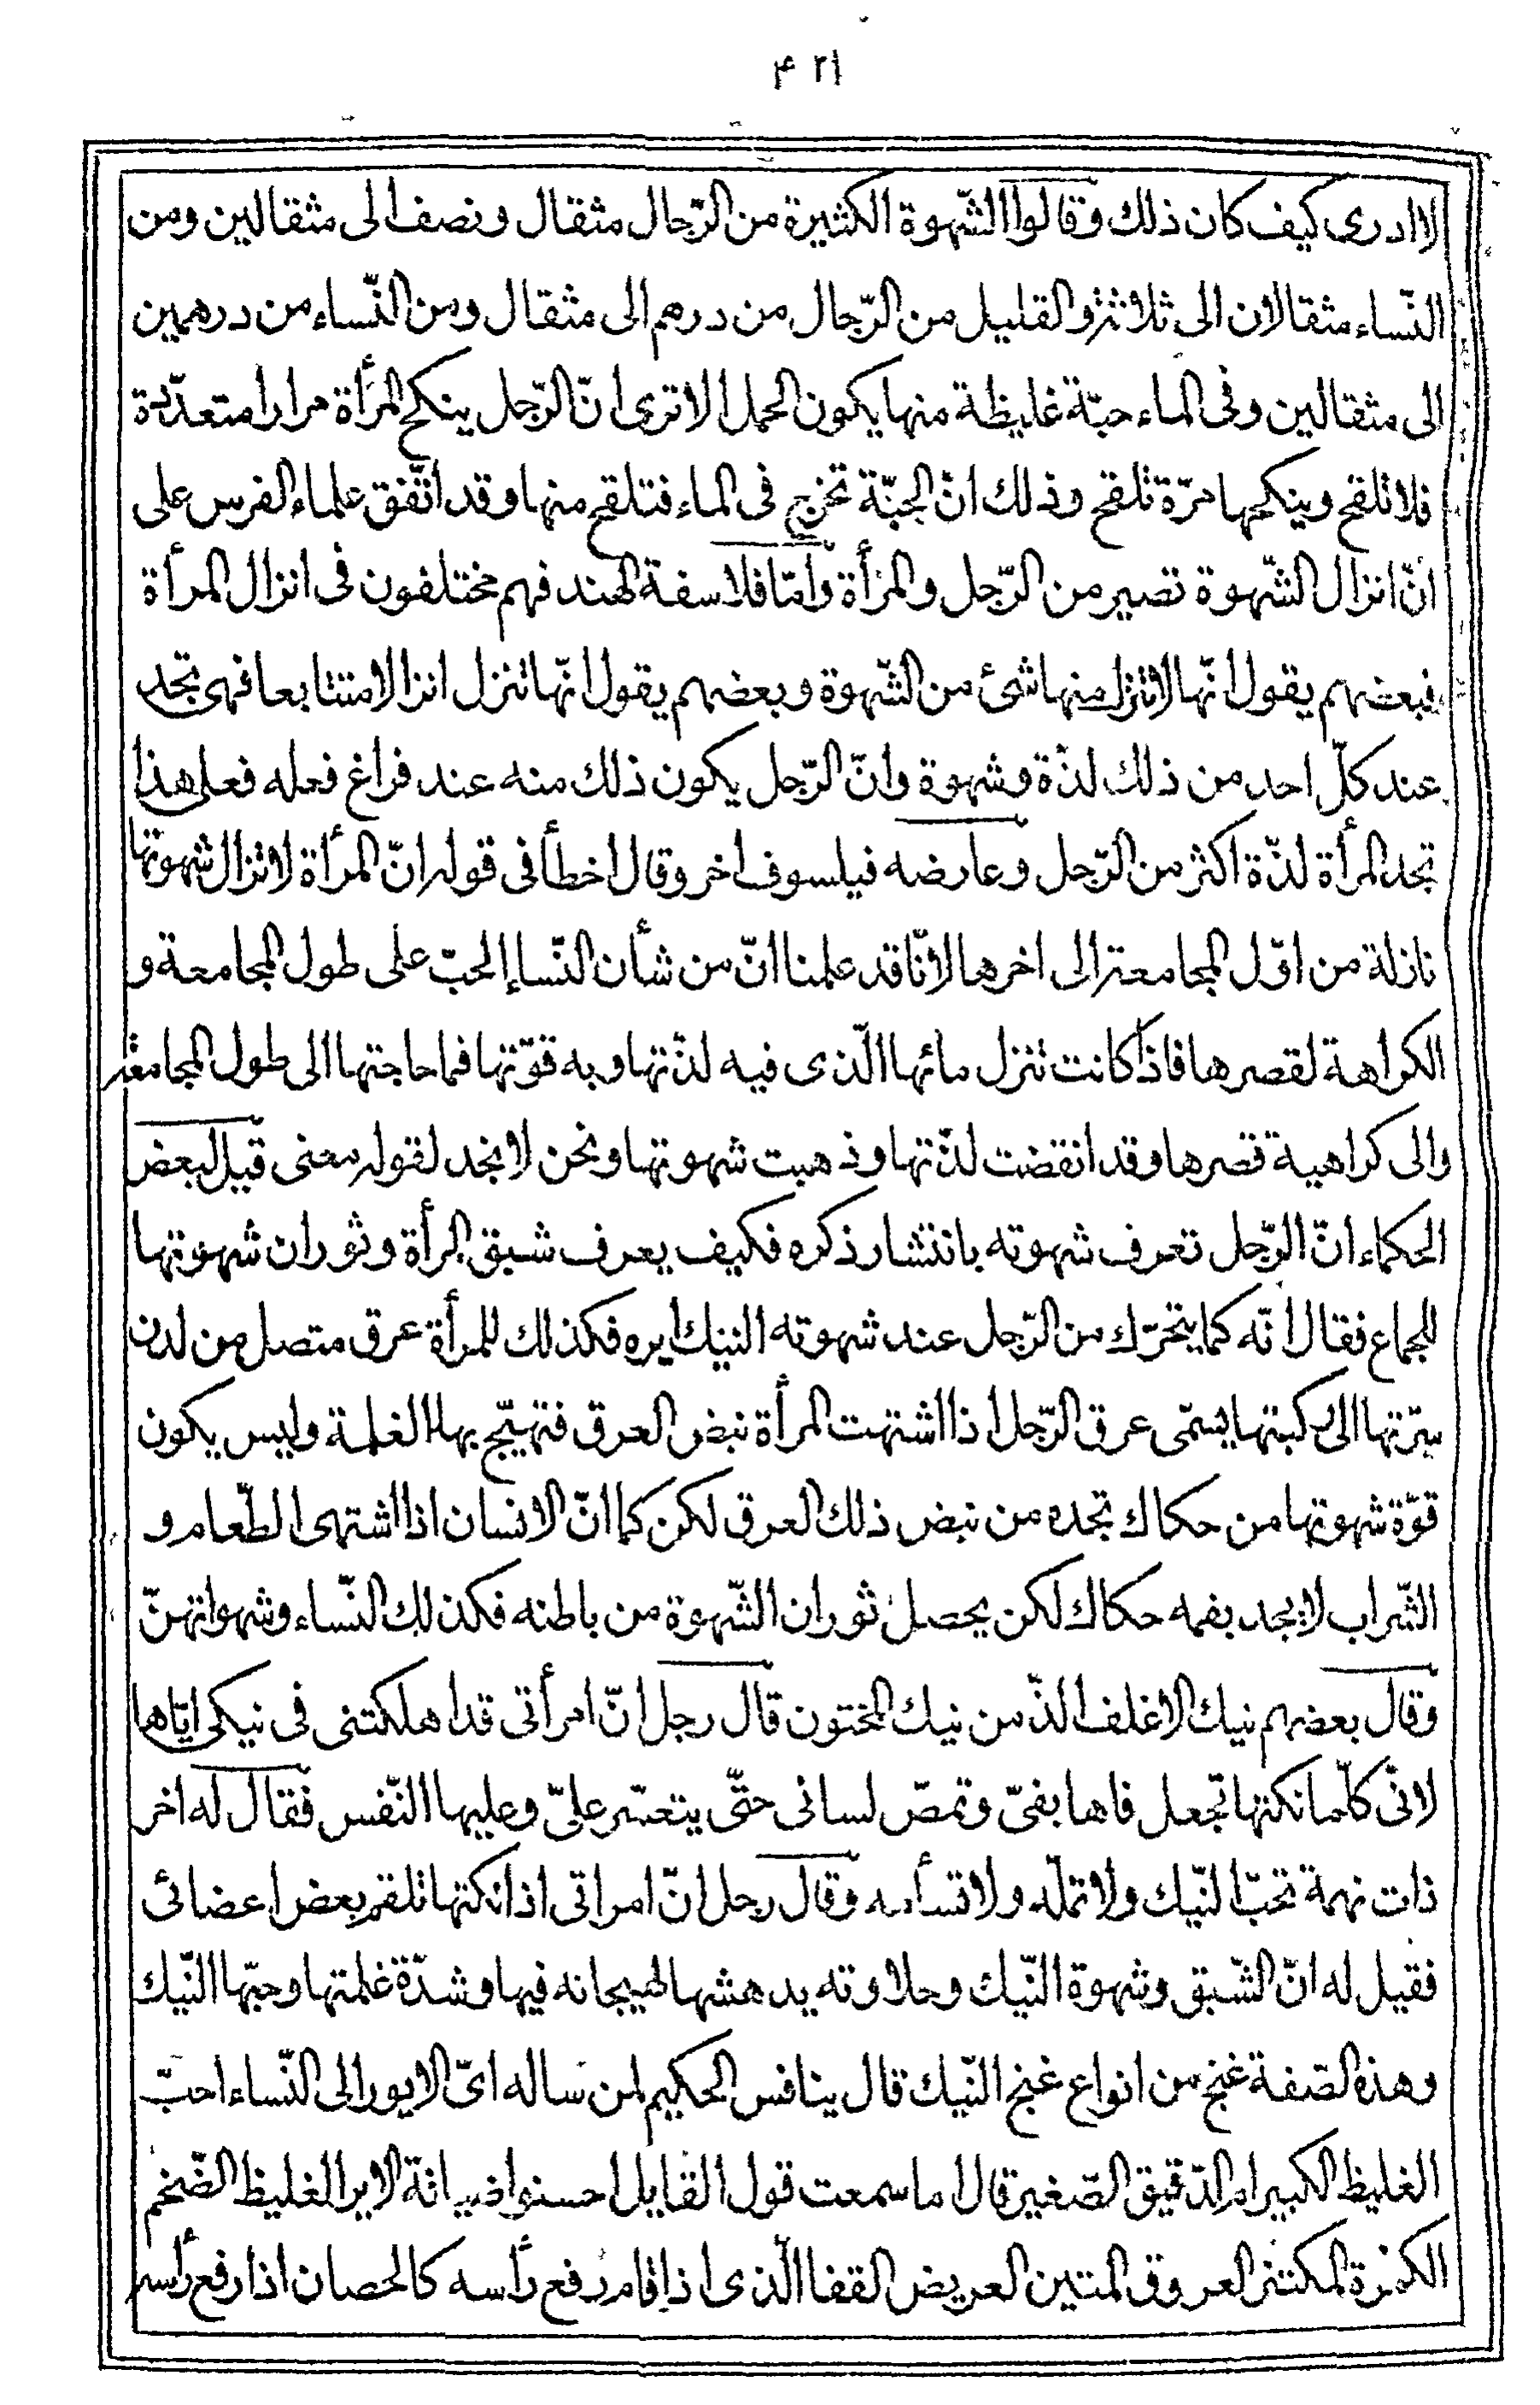 ٤٢١
لاادرى كيف كان ذلك وقالوا الشّهوة الكثيرة من الرّجال مثقال ونصف الى مثقالين ومن
النّساء مثقالان الى ثلاثة والقليل من الرّجال من درهم الى مثقال ومن النّساء من درهمين
الى مثقالين وفى الماء حبّة غليظة منها يكون الحمل الاترى انّ الرّجل ينكح المرأة مرارا متعدّدة
فلا تلقح وينكحها مرّة تلقح وذلك انّ الحبّة تخرج فى الماء فتلقح منها وقد اتّفق علماء الفرس على
انّ انزال الشّهوة تصير من الرّجل والمرأة وامّا فلاسفة الهند فهم مختلفون فى انزال المرأة
فبعضهم يقول انّها لا تنزل منها شئ من الشّهوة وبعضهم يقول انّها تنزل انزالا متتابعا فهى تجد
عند كلّ احد من ذلك لذّة وشهوة وانّ الرّجل يكون ذلك منه عند فراغ فعله فعلى هذا
تجد المرأة لذّة اكثر من الرّجل وعارضه فيلسوف اخر وقال اخطأ فى قوله انّ المرأة لا تزال شهوتها
نازلة من اوّل المجامعة الى اخرها لانّا قد علمنا انّ من شأن النّساء الحبّ على طول المجامعة و
الكراهة لقصرها فاذا كانت تنزل مائها الّذى فيه لذّتها وبه قوّتها فما حاجتها الى طول المجامعة
والى كراهية قصرها وقد انقضت لذّتها وذهبت شهوتها ونحن لا نجد لقوله معنى قيل لبعض
الحكماء انّ الرّجل تعرف شهوته بانتشار ذكره فكيف يعرف شبق المرأة وثوران شهوتها
للجماع فقال انّه كما يتحرّك من الرّجل عند شهوته النيك ايره فكذلك للمرأة عرق متصل من لدن
سرّتها الى ركبتها يسمّى عرق الرّجل اذا اشتهت المرأة نبض العرق فتهيّج بها الغلمة وليس يكون
قوّة شهوتها من حكاك تجده من نبض ذلك العرق لكن كما انّ الانسان اذا اشتهى الطّعام و
الشّراب لا يجد بفمه حكاك لكن يحصل ثوران الشّهوة من باطنه فكذلك النّساء وشهواتهنّ
وقال بعضهم نيك الاغلف الذّ من نيك المختون قال رجل انّ امرأتى قد اهلكتنى فى نيكى ايّاها
لانّى كلّما نكتها تجعل فاها بفىّ وتمصّ لسانى حتّى يتعسّر علىّ وعليها النّفس فقال له اخر
ذات نهمة تحبّ النّيك ولا تملّه ولا تسأمه وقال رجل انّ امراتى اذا نكتها تلقم بعض اعضائى
فقيل له انّ الشّبق وشهوة النّيك وحلاوته يدهشها لهيجانه فيها وشدّة غلمتها وحبّها النّيك
وهذه الصّفة غنج من انواع غنج النّيك قال ينافس الحكيم لمن ساله اىّ الايور الى النّساء احبّ
الغليظ الكبير ام الدّقيق الصّغير قال اما سمعت قول القايل احسنوا ضيافة الاير الغليظ الضّخم
الكمرة المكتنز العروق المتين العريض القفا الّذى اذا قام رفع رأسه كالحصان اذا رفع رأسه